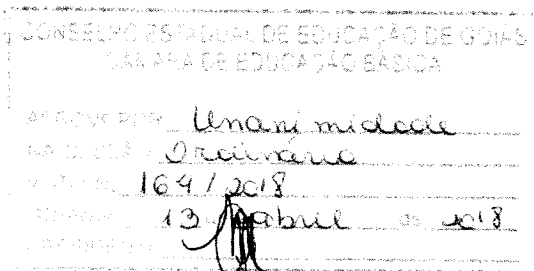 CONSELHO ESTADUAL DE EDUCAÇÃO DE GOIÁS
CÂMARA DE EDUCAÇÃO BÁSICA
Unanimidade
NA SESSÃO Ordinária
164 / 2018
13 abril de 2018